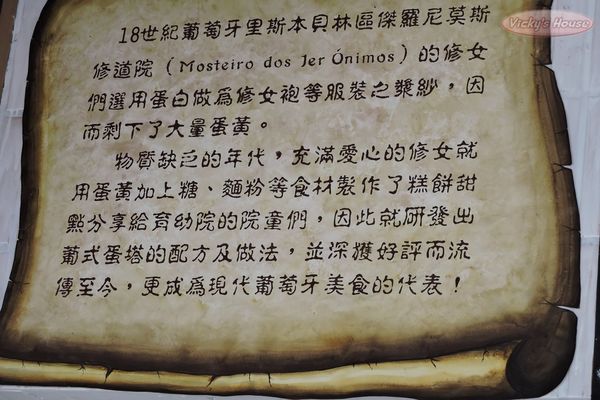 Vicky's House
18世紀葡萄牙里斯本貝林區傑羅尼莫斯
修道院（Mosteiro dos Jer Ónimos）的修女
們選用蛋白做為修女袍等服裝之漿紗，因
而剩下了大量蛋黃。
物質缺乏的年代，充滿愛心的修女就
用蛋黃加上糖、麵粉等食材製作了糕餅甜
點分享給育幼院的院童們，因此就研發出
葡式蛋塔的配方及做法，並深獲好評而流
傳至今，更成為現代葡萄牙美食的代表！